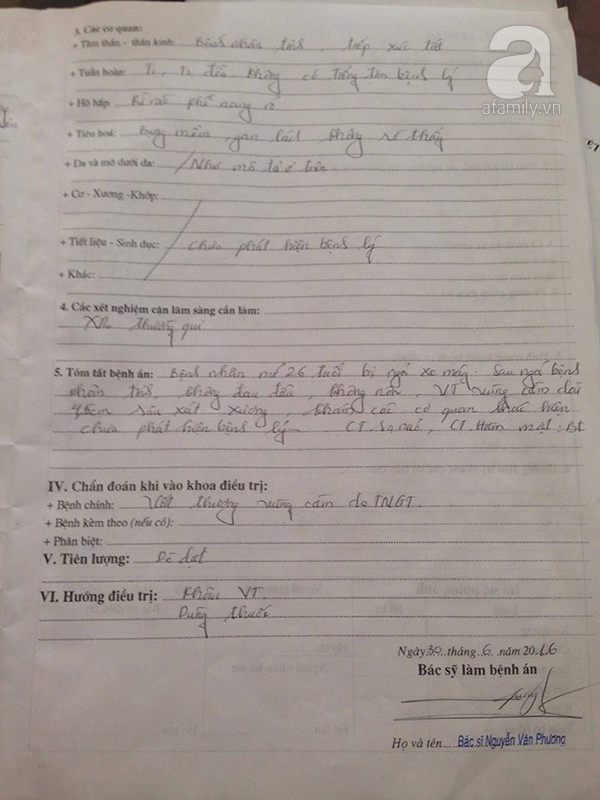 3. Các cơ quan:
afamily.vn
+ Tâm thần - thần kinh: Bệnh nhân tỉnh, tiếp xúc tốt
+ Tuần hoàn: T1, T2 đều không có tiếng tim bệnh lý
+ Hô hấp: Rì rào phế nang rõ
+ Tiêu hoá: Bụng mềm, gan lách không sờ thấy
+ Da và mô dưới da: Như mô tả ở trên
+ Cơ - Xương -Khớp:
+ Tiết liệu - Sinh dục: chưa phát hiện bệnh lý
+ Khác:
4. Các xét nghiệm cận lâm sàng cần làm:
XN thường qui
5. Tóm tắt bệnh án: Bệnh nhân nữ 26 tuổi bị ngã xe máy. Sau ngã bệnh
nhân tỉnh, không đau đầu, không nôn, VT vùng cằm dài
sâu sát xương khám các cơ quan khác hiện
chưa phát hiện bệnh lý CT sọ não, CT Hàm mặt: BT
IV. Chẩn đoán khi vào khoa điều trị:
+ Bệnh chính: Vết thương vùng cằm do TNGT.
+ Bệnh kèm theo (nếu có):
+ Phân biệt:
V. Tiên lượng: Dè dặt
VI. Hướng điều trị: Khâu VT
Dùng thuốc
Ngày 30 tháng 6 năm 2016
Bác sỹ làm bệnh án
Họ và tên Bác sĩ Nguyễn Văn Phương